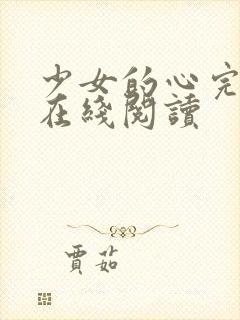 少女的心完
在綫閱讀
賈茹